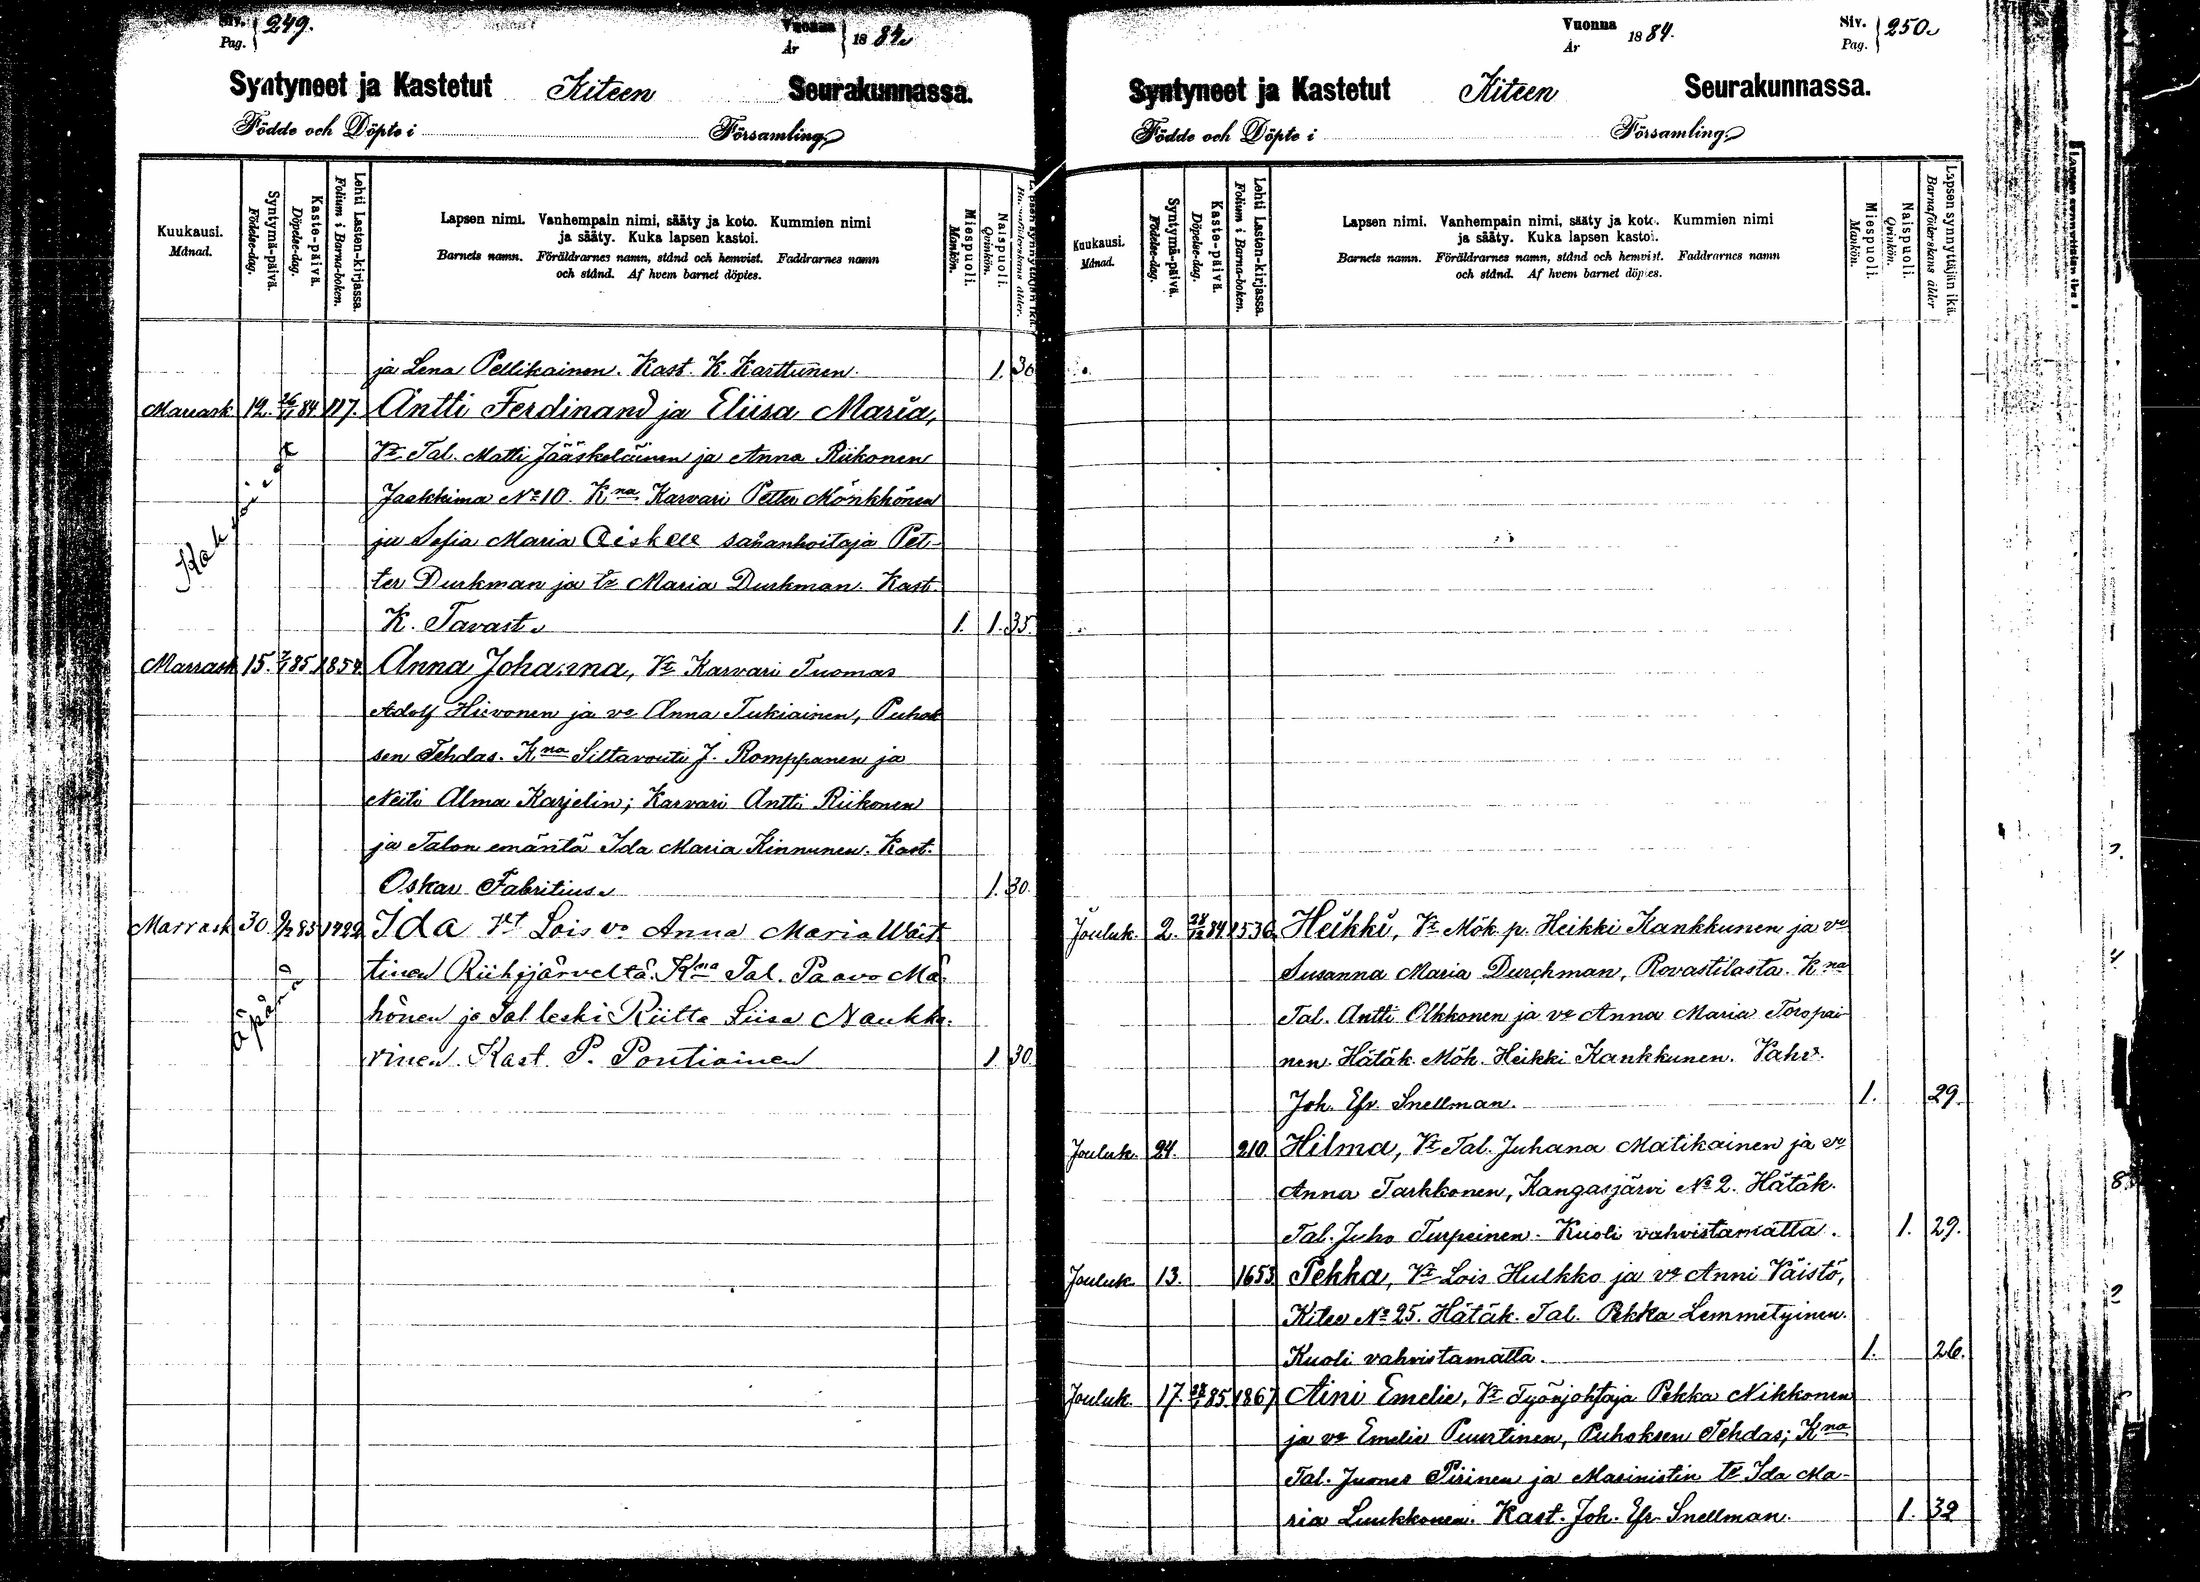 Siv. Pag. 249.
Vuonna År 1884.
Syntyneet ja Kastetut Kiteen Seurakunnassa.
Födde och Döpte i Församling
Kuukausi. Månad.
Syntymä-päivä. Födelse-dag.
Kaste-päivä. Döpelse-dag.
Lehti Lasten-kirjassa. Folium i Barna-boken.
Lapsen nimi. Vanhempain nimi, sääty ja koto. Kummien nimi
ja sääty. Kuka lapsen kastoi.
Barnets namn. Föräldrarnes namn, stånd och hemvist. Faddrarnes namn
och stånd. Af hvem barnet döptes.
Miespuoli. Mankön.
Naispuoli. Qvinkön.
ja Lena Pellikainen. Kast. K. Karttunen. 1. 30
Marrask 12. 26/11 84 117. Antti Ferdinand ja Eliisa Maria,
Vt Tal. Matti Jääskeläinen ja Anna Riikonen
Jaakkima No 10. Kna Karvari Petter Mönkhönen
ja Sofia Maria sahanhoitaja Pet-
ter Durkman ja tr Maria Durkman. Kast.
K. Tavast. 1. 1. 35.
Marrask 15. 85. 1854. Anna Johanna, Vt Karvari Tuomas
Adolf Hirvonen ja vo Anna Tukiainen, Puhok
sen Tehdas. Kna Siltavouti J. Romppanen ja
Neiti Alma Karjelin; Karvari Antti Riikonen
ja Talon emäntä Ida Maria Kinnunen. Kast.
Oskar Fabritius. 1. 30.
Marrask 30. 85 1722 Ida Vt Lois vo Anna Maria Wäist
tinen Riihijärveltä. Kna Tal. Paavo Ma-
hönen ja Tal leski Riitta Liisa Naukka-
rinen. Kast. P. Pontiainen 1 30.
äpärä
Vuonna År 1884.
Siv. Pag. 250.
Syntyneet ja Kastetut Kiteen Seurakunnassa.
Födde och Döpte i Församling
Kuukausi. Månad.
Syntymä-päivä. Födelse-dag.
Kaste-päivä. Döpelse-dag.
Lehti Lasten-kirjassa. Folium i Barna-boken.
Lapsen nimi. Vanhempain nimi, sääty ja koto. Kummien nimi
ja sääty. Kuka lapsen kastoi.
Barnets namn. Föräldrarnes namn, stånd och hemvist. Faddrarnes namn
och stånd. Af hvem barnet döptes.
Miespuoli. Mankön.
Naispuoli. Qvinkön.
Lapsen synnyttäjän ikä. Barnaföderskans ålder
Jouluk. 2. 28/12 84 1536. Heikki, Vt Mök. p. Heikki Kankkunen ja vo
Susanna Maria Durchman, Rovastilasta. Kna
Tal. Antti Olkkonen ja vo Anna Maria Toropai-
nen. Hätäk. Mök. Heikki Kankkunen. Vahv.
Joh. Efr. Snellman. 1. 29.
Jouluk. 24. 210 Hilma, Vt Tal. Juhana Matikainen ja vo
Anna Tarkkonen, Kangasjärvi No 2. Hätäk.
Tal. Juho Turpeinen. Kuoli vahvistamatta. 1. 29.
Jouluk. 13. 1653 Pekka, Vt Lois Hulkko ja vo Anni Väistö,
Kitee No 25. Hätäk. Tal. Pekka Lemmetyinen.
Kuoli vahvistamatta. 1. 26.
Jouluk. 17. 85 1867 Aini Emelie, Vt Työnjohtaja Pekka Nikkonen
ja vo Emelie Puurtinen, Puhoksen Tehdas; Kna
Tal. Juones Pirinen ja Masinistin tr Ida Ma-
ria Luukkonen. Kast. Joh. Efr. Snellman. 1. 32